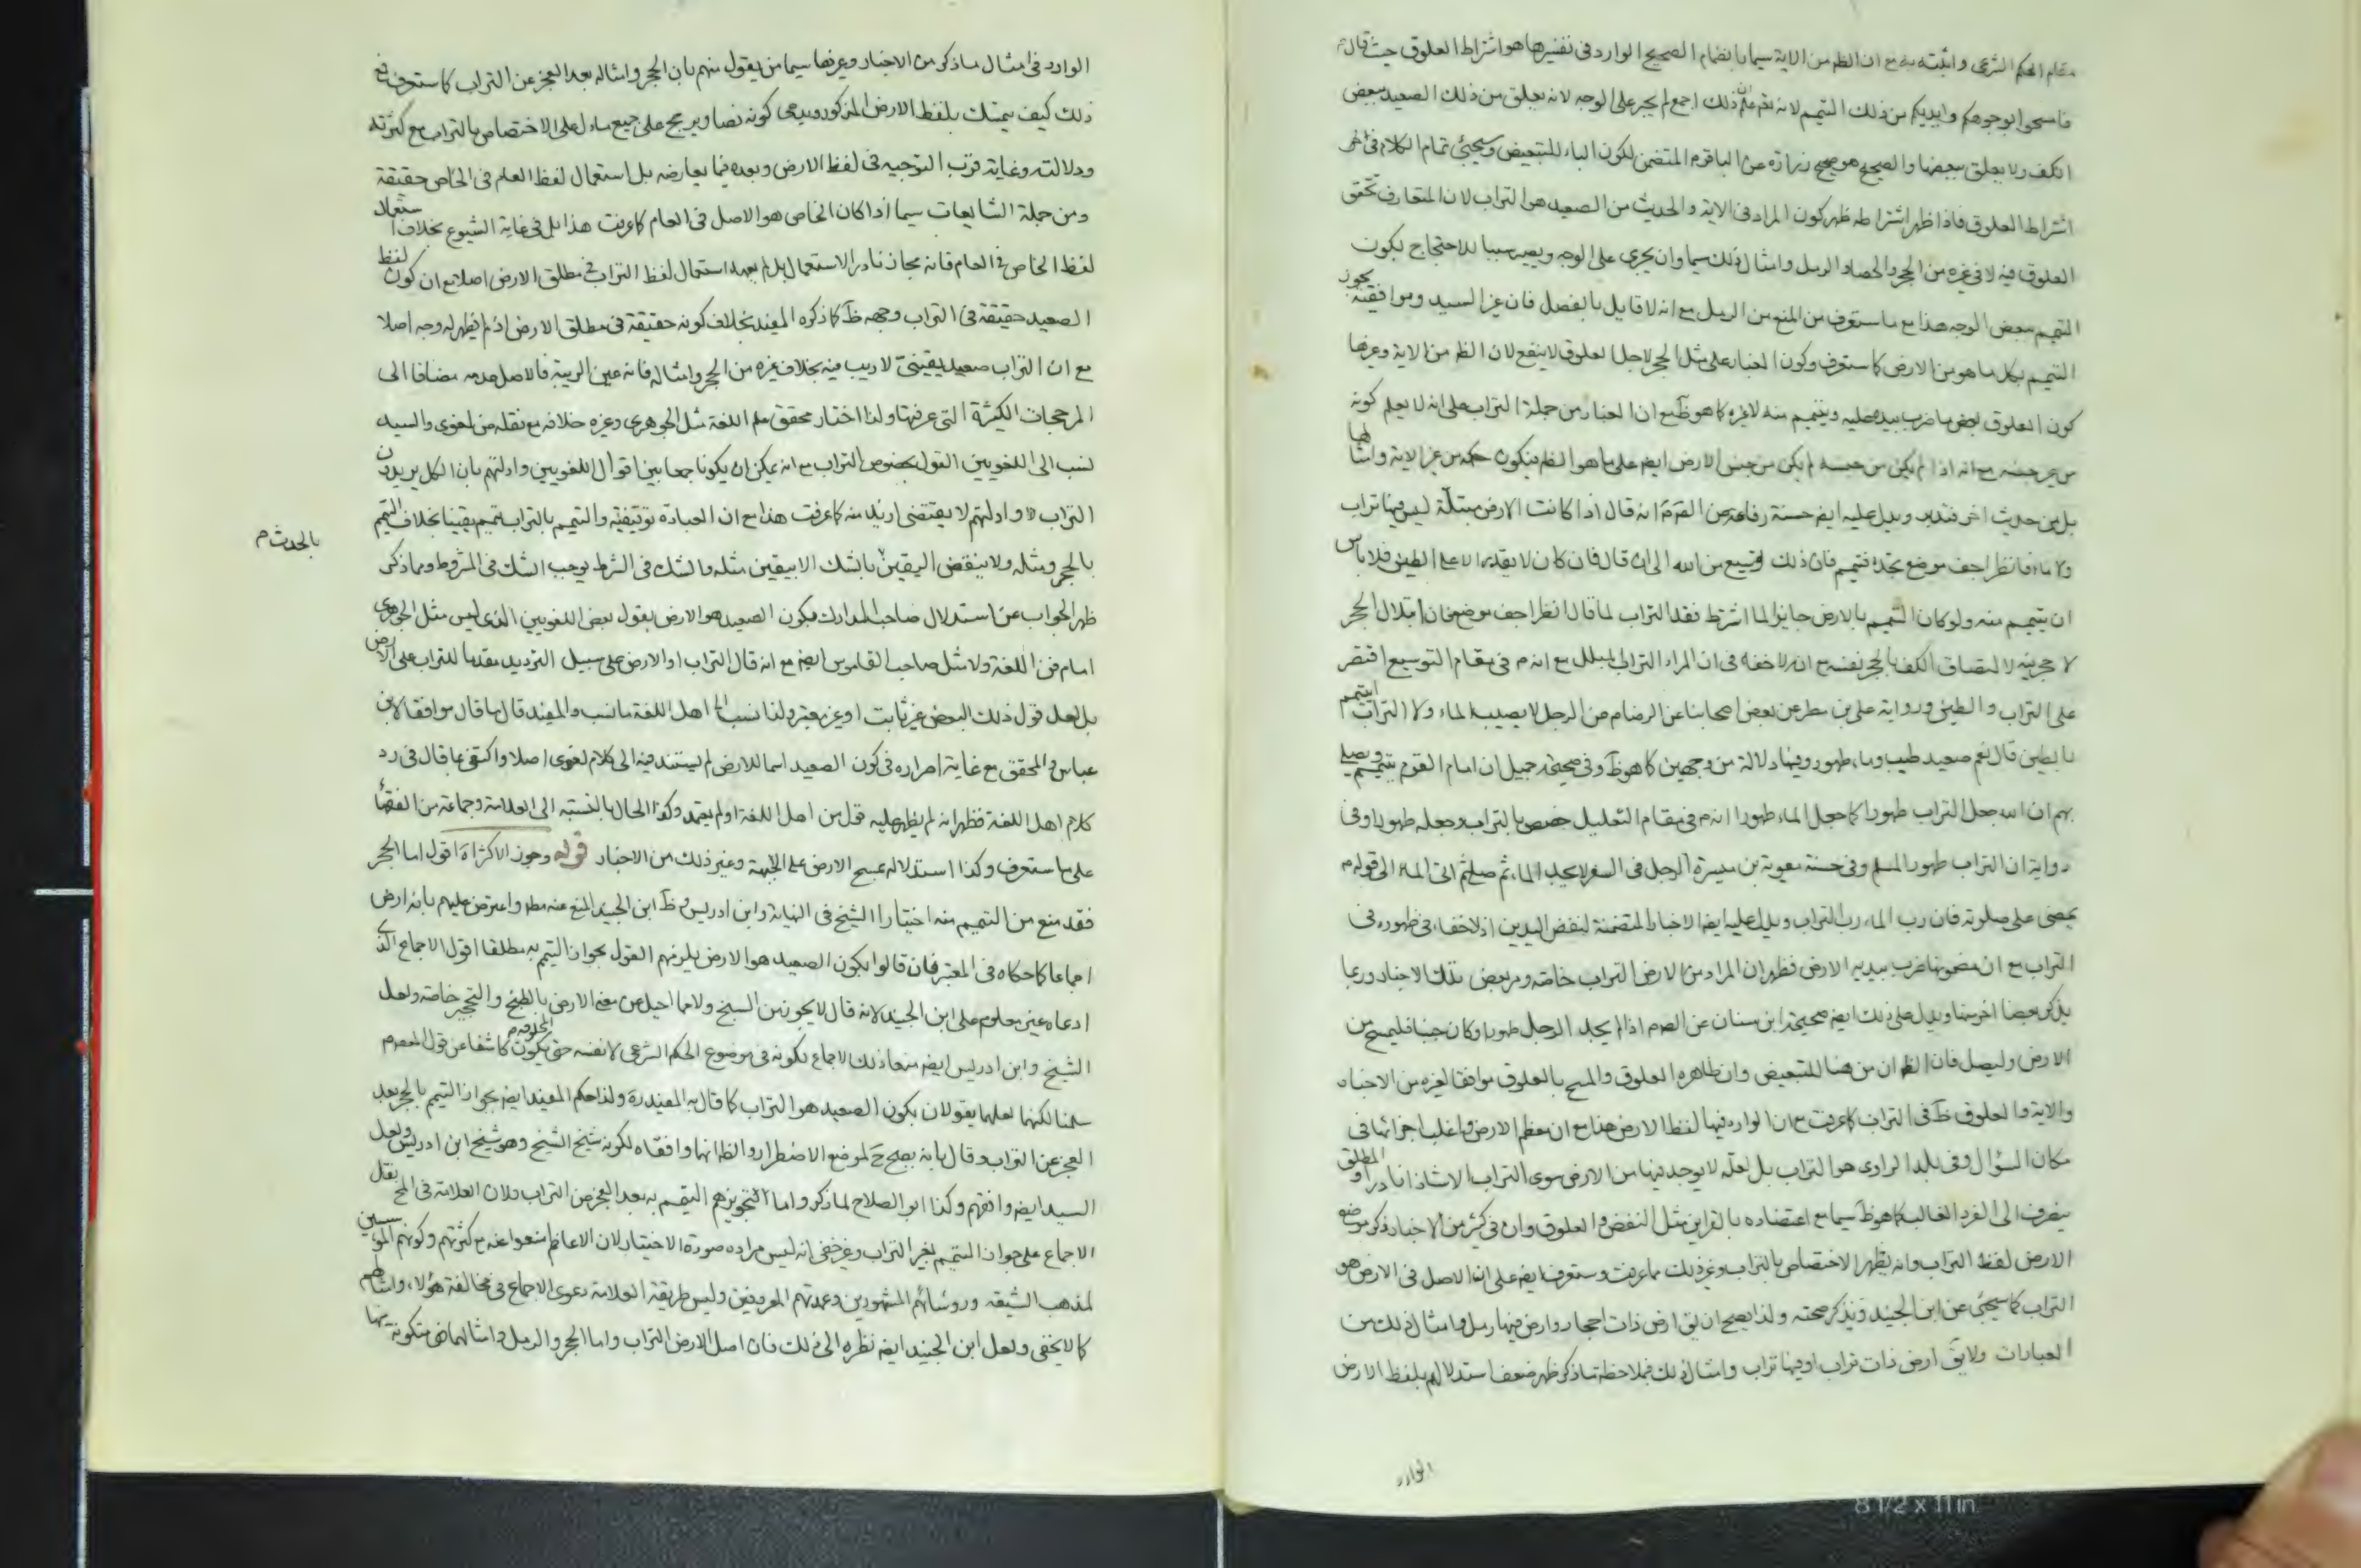 مقام الحكم الشرعى و اثبته به مع ان الظ من الاية سيما بانضمام الصحيح الوارد فى تفسيرها هو اشتراط العلوق حيث قال
فامسحوا بوجوهكم وايديكم من ذلك التيمم لانه علم ان ذلك اجمع لم يجر على الوجه لانه يعلق من ذلك الصعيد ببعض
الكف ولا يعلق ببعضها والصحيح هو صحيح زرارة عن الباقر م المتضمن لكون الباء للتبعيض وسيجئ تمام الكلام فى
اشتراط العلوق فاذا ظهر اشتراطه ظهر كون المراد فى الاية والحديث من الصعيد هو التراب لان المتعارف تحقق
العلوق فيه لا فى غيره من الحجر والحصا والرمل وامثال ذلك سيما وان يجرى على الوجه ويصير سببا للاحتجاج بكون
التيمم ببعض الوجه هذا مع ما ستعرف من المنع من الرمل مع انه لا قايل بالفصل فان غير السيد وموافقيه يجوز
التيمم بكل ما هو من الارض كا ستعرف وكون الغبار على مثل الحجر لاجل العلوق لا ينفع لان الظ من الاية وغيرها
كون العلوق بعض ما ضرب بيده عليه ويتيمم منه لا غيره كا هو ظ مع ان الغبار من جملة التراب على انه لا يعلم كونه
من غير جنسه مع انه اذا لم يكن من جنسه لم يكن من جنس الارض ايض على ما هو الظ فيكون حكمه من غير الاية وامثالها
بل من حديث اخر فتدبر ويدل عليه ايض حسنة رفاعة عن الص م انه قال اذا كانت الارض مبتلة ليس فيها تراب
ولا ماء فانظر اجف موضع تجده فتيمم فان ذلك توسيع من الله الى ان قال فان كان لا يقدر الا على الطين فلا باس
ان يتيمم منه ولو كان التيمم بالارض جايزا لما اشترط فقد التراب لما قال انظر اجف موضع فان ابتلال الحجر
لا حجر فيه لا لتصاق الكف بالحجر نفسه مع انه لا خفاء فى ان المراد التراب المبلل مع انه م فى مقام التوسيع اقتصر
على التراب والطين ورواية على بن مطر عن بعض اصحابنا عن الرضا م من الرجل لا يصيب الماء ولا التراب ايتيمم
بالطين قال نعم صعيد طيب وماء طهور وفيها دلالة من وجهين كا هو ظ وفى صحيحة جميل ان امام القوم يتيمم ويصلى
بهم ان الله جعل التراب طهورا كا جعل الماء طهورا انه م فى مقام التعليل خصص بالتراب وجعله طهورا وفى
رواية ان التراب طهور المسلم وفى حسنة معوية بن ميسرة الرجل فى السفر لا يجد الماء ثم صلى ثم اتى الماء الى قوله م
يمضى على صلوته فان رب الماء رب التراب ويدل عليه ايض الاخبار المتضمنة لنفض اليدين اذ لا خفاء فى ظهوره فى
التراب مع ان مضمونها ضرب بيديه الارض فظهر ان المراد من الارض التراب خاصة ومر بعض تلك الاخبار وربما
يذكر بعضا اخر منها ويدل على ذلك ايض صحيحة ابن سنان عن الص م اذا لم يجد الرجل طهورا وكان جنبا فليمسح من
الارض وليصل فان الظ ان من هنا للتبعيض وان ظاهره العلوق والمسح بالعلوق موافقا لغيره من الاخبار
والاية والعلوق ظ فى التراب كا عرفت مع ان الوارد فيها لفظ الارض هذا مع ان معظم الارض واغلب اجزائها فى
مكان السؤال وفى بلد الراوى هو التراب بل لعله لا يوجد فيها من الارض سوى التراب الا شاذا نادرا والمطلق
ينصرف الى الفرد الغالب كا هو ظ سيما مع اعتضاده بالقراين مثل النفض والعلوق وان فى كثير من الاخبار ذكر موضع
الارض لفظ التراب وانه يظهر الاختصاص بالتراب وغير ذلك مما عرفت وستعرف ايض على ان الاصل فى الارض هو
التراب كا سيجئ عن ابن الجنيد ونذكر صحته ولذا يصح ان يق ارض ذات احجار وارض فيها رمل وامثال ذلك من
العبارات ولا يق ارض ذات تراب او فيها تراب وامثال ذلك فبملاحظة ما ذكر ظهر ضعف استدلالهم بلفظ الارض
الوارد
الوارد فى امثال ما ذكر من الاخبار وغيرها سيما من يقول منهم بان الحجر وامثاله بعد العجز عن التراب كا ستعرف مع
ذلك كيف يتمسك بلفظ الارض المذكور ويدعى كونه نصا ويرجح على جميع ما دل على الاختصاص بالتراب مع كثرته
ودلالته وغاية قرب التوجيه فى لفظ الارض وبعده فيما يعارضه بل استعمال لفظ العام فى الخاص حقيقة
ومن جملة الشايعات سيما اذا كان الخاص هو الاصل فى العام كا عرفت هذا بل فى غاية الشيوع بخلاف استعمال
لفظ الخاص فى العام فانه مجاز نادر الاستعمال بل لم يعهد استعمال لفظ التراب فى مطلق الارض اصلا مع ان كون لفظ
الصعيد حقيقة فى التراب وجهه ظ كا ذكره المفيد بخلاف كونه حقيقة فى مطلق الارض اذ لم يظهر له وجه اصلا
مع ان التراب صعيد يقينى لا ريب فيه بخلاف غيره من الحجر وامثاله فانه عين الريبة فالاصل عدمه مضافا الى
المرجحات الكثيرة التى عرفتها ولذا اختار محقق علم اللغة مثل الجوهرى وغيره خلافه مع نقله من لغوى والسيد
نسب الى اللغويين القول بخصوص التراب مع انه يمكن ان يكونا جمعا بين اقوال اللغويين وادلتهم بان الكل يريدون
التراب وادلتهم لا يقتضى ازيد منه كا عرفت هذا مع ان العبادة توقيفية والتيمم بالتراب تيمم يقينا بخلاف التيمم
بالحجر ومثله ولا ينقض اليقين بالشك الا بيقين مثله والشك فى الشرط يوجب الشك فى المشروط ومما ذكر
بالحدث م
ظهر الجواب عن استدلال صاحب المدارك بكون الصعيد هو الارض بقول بعض اللغويين الذى ليس مثل الجوهرى
امام فن اللغة ولا مثل صاحب القاموس ايض مع انه قال التراب او الارض على سبيل الترديد مقدما للتراب على الارض
بل لعل قول ذلك البعض غير ثابت او غير معتبر ولذا نسب الى اهل اللغة ما نسب والمفيد قال ما قال موافقا لابن
عباس والمحقق مع غاية اصراره فى كون الصعيد اسما للارض لم يستند فيه الى كلام لغوى اصلا واكتفى بما قال فى رد
كلام اهل اللغة فظهر انه لم يظهر عليه قول من اهل اللغة او لم يعتمد وكذا الحال بالنسبة الى العلامة وجماعة من الفقهاء
على ما ستعرف وكذا استدلاله بمسح الارض على الجبهة وغير ذلك من الاخبار قوله وجوز الاكثر اه اقول اما الحجر
فقد منع من التيمم منه اختيارا الشيخ فى النهاية وابن ادريس وظ ابن الجنيد المنع عنه مط واعترض عليهم بانه ارض
اجماعا كا حكاه فى المعتبر فان قالوا بكون الصعيد هو الارض يلزمهم القول بجواز التيمم به مطلقا اقول الاجماع الذى
ادعاه غير معلوم على ابن الجنيد لانه قال لا يجوز من السبخ ولا مما احيل عن معنى الارض بالطبخ والتحجير خاصة ولعل
الشيخ وابن ادريس ايض منعا ذلك الاجماع لكونه فى موضوع الحكم الشرعى لا نفسه حتى يكون كاشفا عن قول المعصوم
سلمنا لكنهما لعلهما يقولان بكون الصعيد هو التراب كا قال به المفيد ره ولذا حكم المفيد ايض بجواز التيمم بالحجر بعد
العجز عن التراب وقال بانه يصح ح لموضع الاضطرار والظ انهما وافقاه لكونه شيخ الشيخ وهو شيخ ابن ادريس ولعل
السيد ايض وافقهم وكذا ابو الصلاح لما ذكر واما تجويزهم التيمم به بعد العجز من التراب فلان العلامة فى المخ نقل
الاجماع على جواز التيمم بغير التراب وغير خفى انه ليس مراده صورة الاختيار لان الاعاظم منعوا عنه مع كثرتهم وكونهم المؤسسين
لمذهب الشيعة ورؤسائهم المشهورين وعمدتهم المعروفين وليس طريقة العلامة دعوى الاجماع فى مخالفة هؤلاء وامثالهم
كا لا يخفى ولعل ابن الجنيد ايض نظره الى ذلك فان اصل الارض التراب واما الحجر والرمل وامثالهما فمتكونة منها
8 1/2 x 11 in.